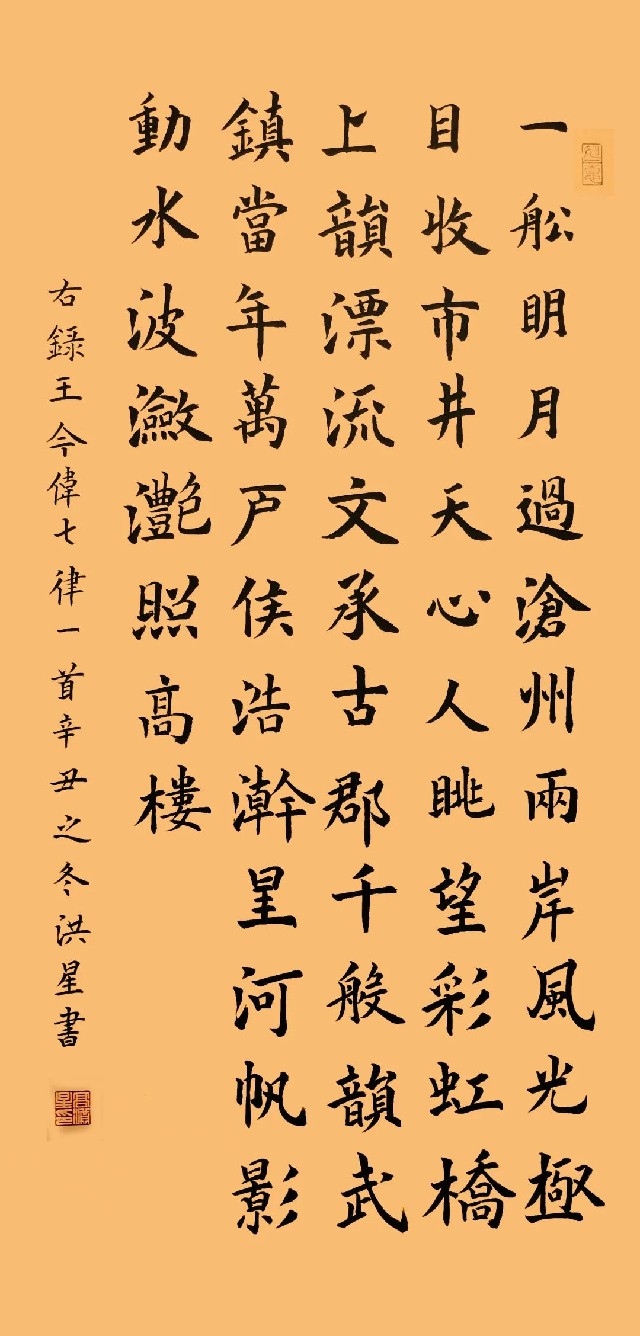 一船明月過滄州兩岸風光極
目收市井天心人眺望彩虹橋
上韻漂流文承古郡千般韻武
鎮當年萬戶侯浩瀚星河帆影
動水波瀲灔照高樓
右錄王今偉七律一首辛丑之冬洪星書